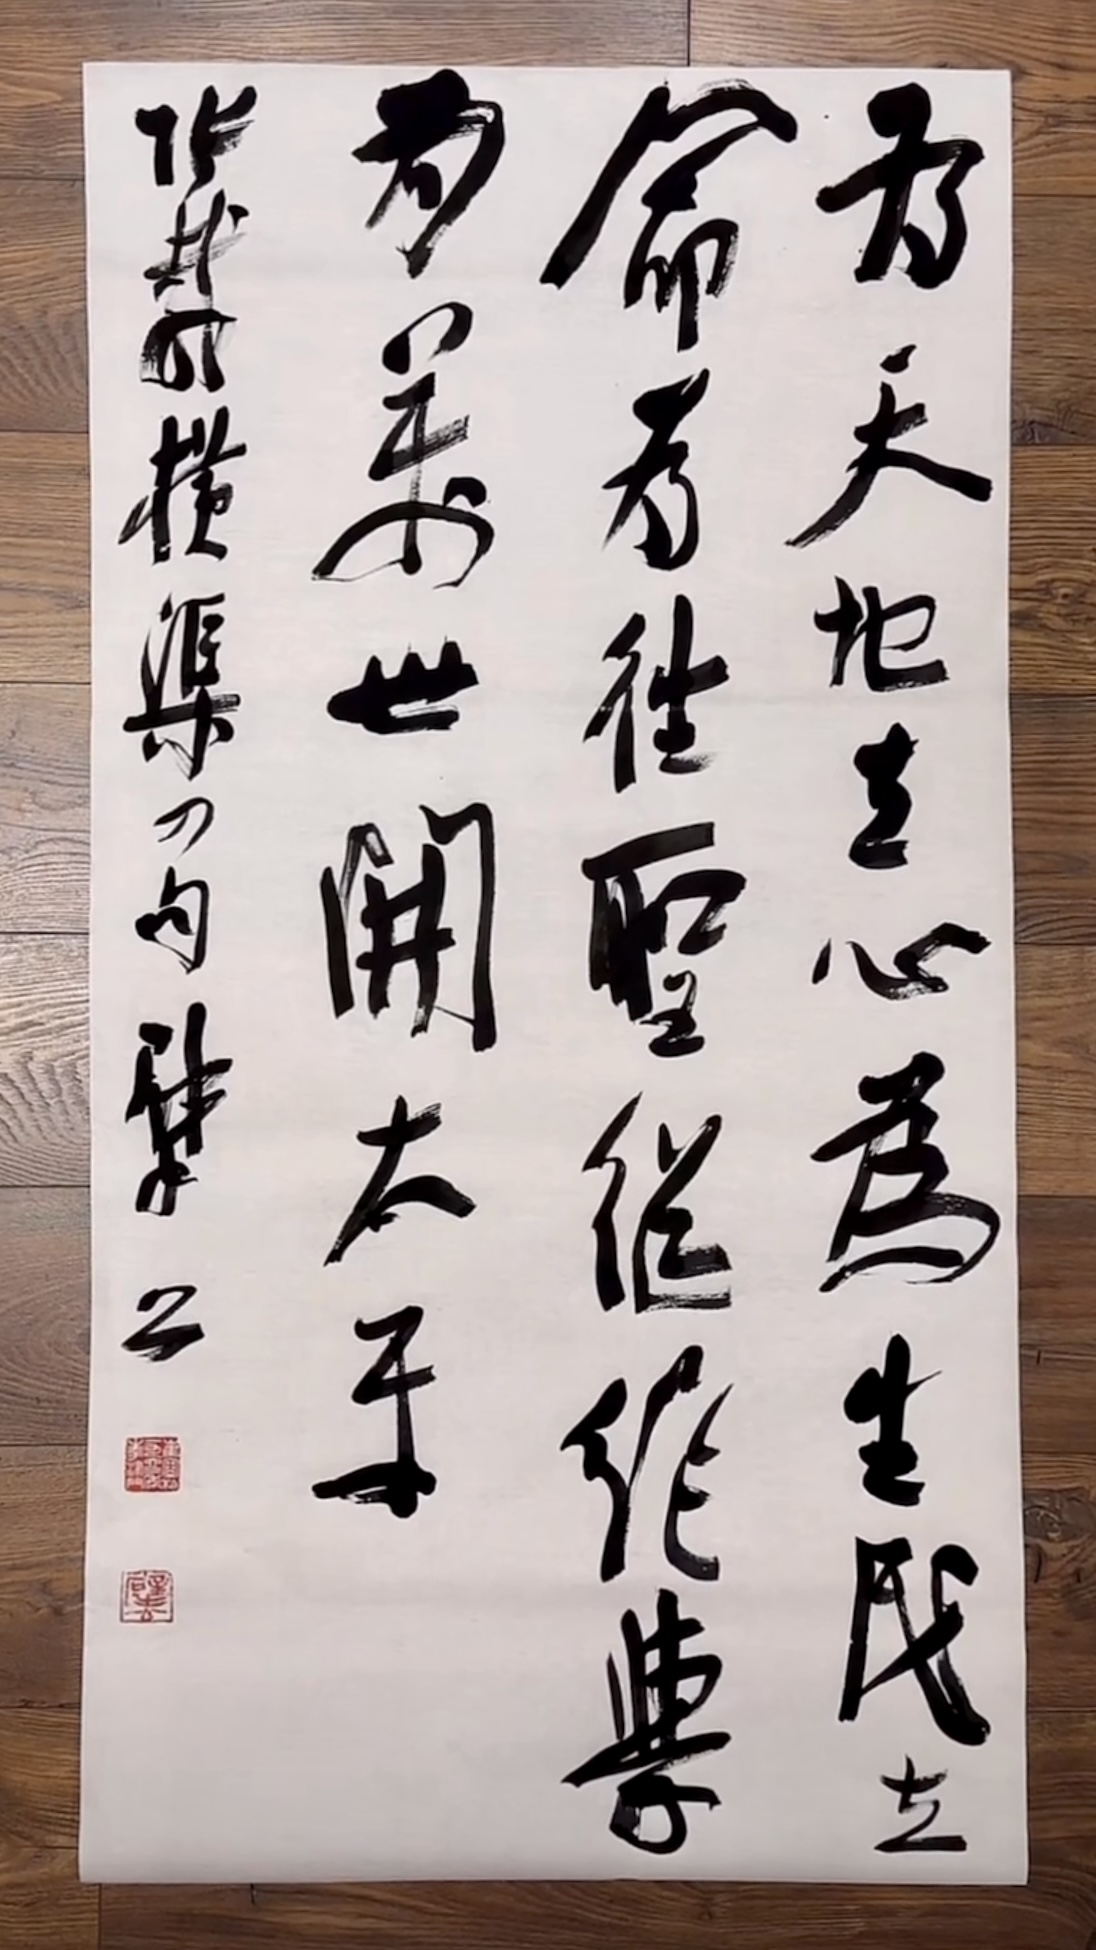 為天地立心為生民立
命為往聖繼絕學
為萬世開太平
橫渠句